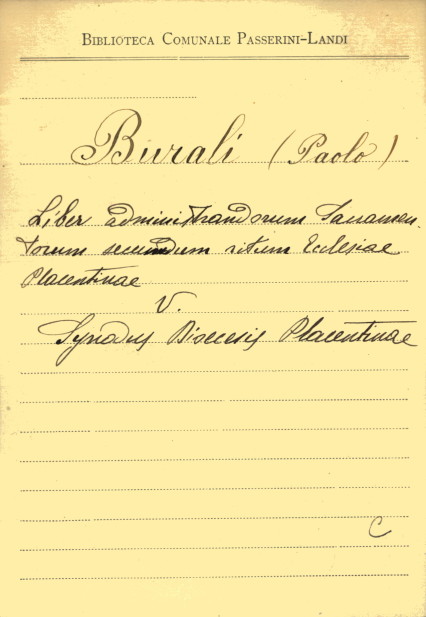 BIBLIOTECA COMUNALE PASSERINI-LANDI
Burali (Paolo)
Liber administrandorum Sacramen-
torum secundum ritum Ecclesiae
Placentinae
V.
Synodus Dioecesis Placentinae
C